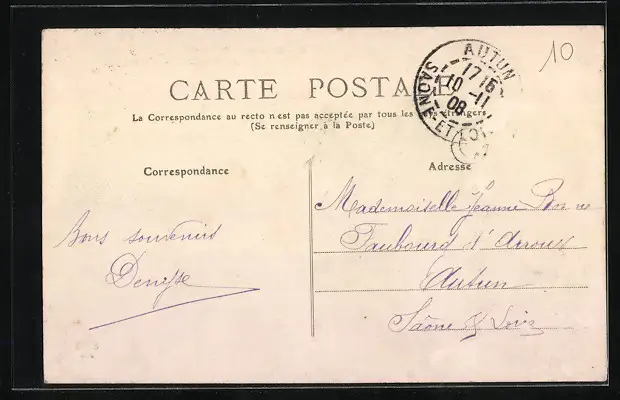 10
AUTUN
17 15
10 - 11
08
SAÔNE-ET-LOIRE
CARTE POSTALE
La Correspondance au recto n'est pas acceptée par tous les pays étrangers
(Se renseigner à la Poste)
Correspondance
Adresse
Bons souvenirs
Denyse
Mademoiselle Jeanne
Faubourg d'Arroux
Autun
Saône & Loire